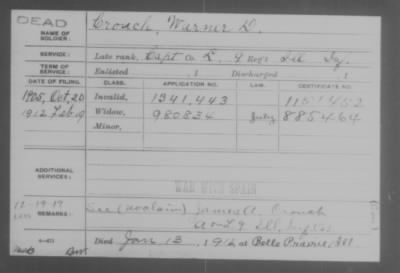 DEAD
NAME OF SOLDIER: Crouch, Warner D.
SERVICE: Late rank, Capt Co. L, 9 Reg't Ill Inf.
TERM OF SERVICE: Enlisted , 1 Discharged , 1
DATE OF FILING. CLASS. APPLICATION NO. LAW. CERTIFICATE NO.
1905, Oct. 20 Invalid, 1341,443 1151452
1912 Feb 19 Widow, 980834 885464
Minor,
ADDITIONAL SERVICES:
WAR WITH SPAIN
12-19-17
REMARKS: See James A. Crouch
Co L 9 Ill
Died Jan 13, 1912 at Belle Prairie, Ill.